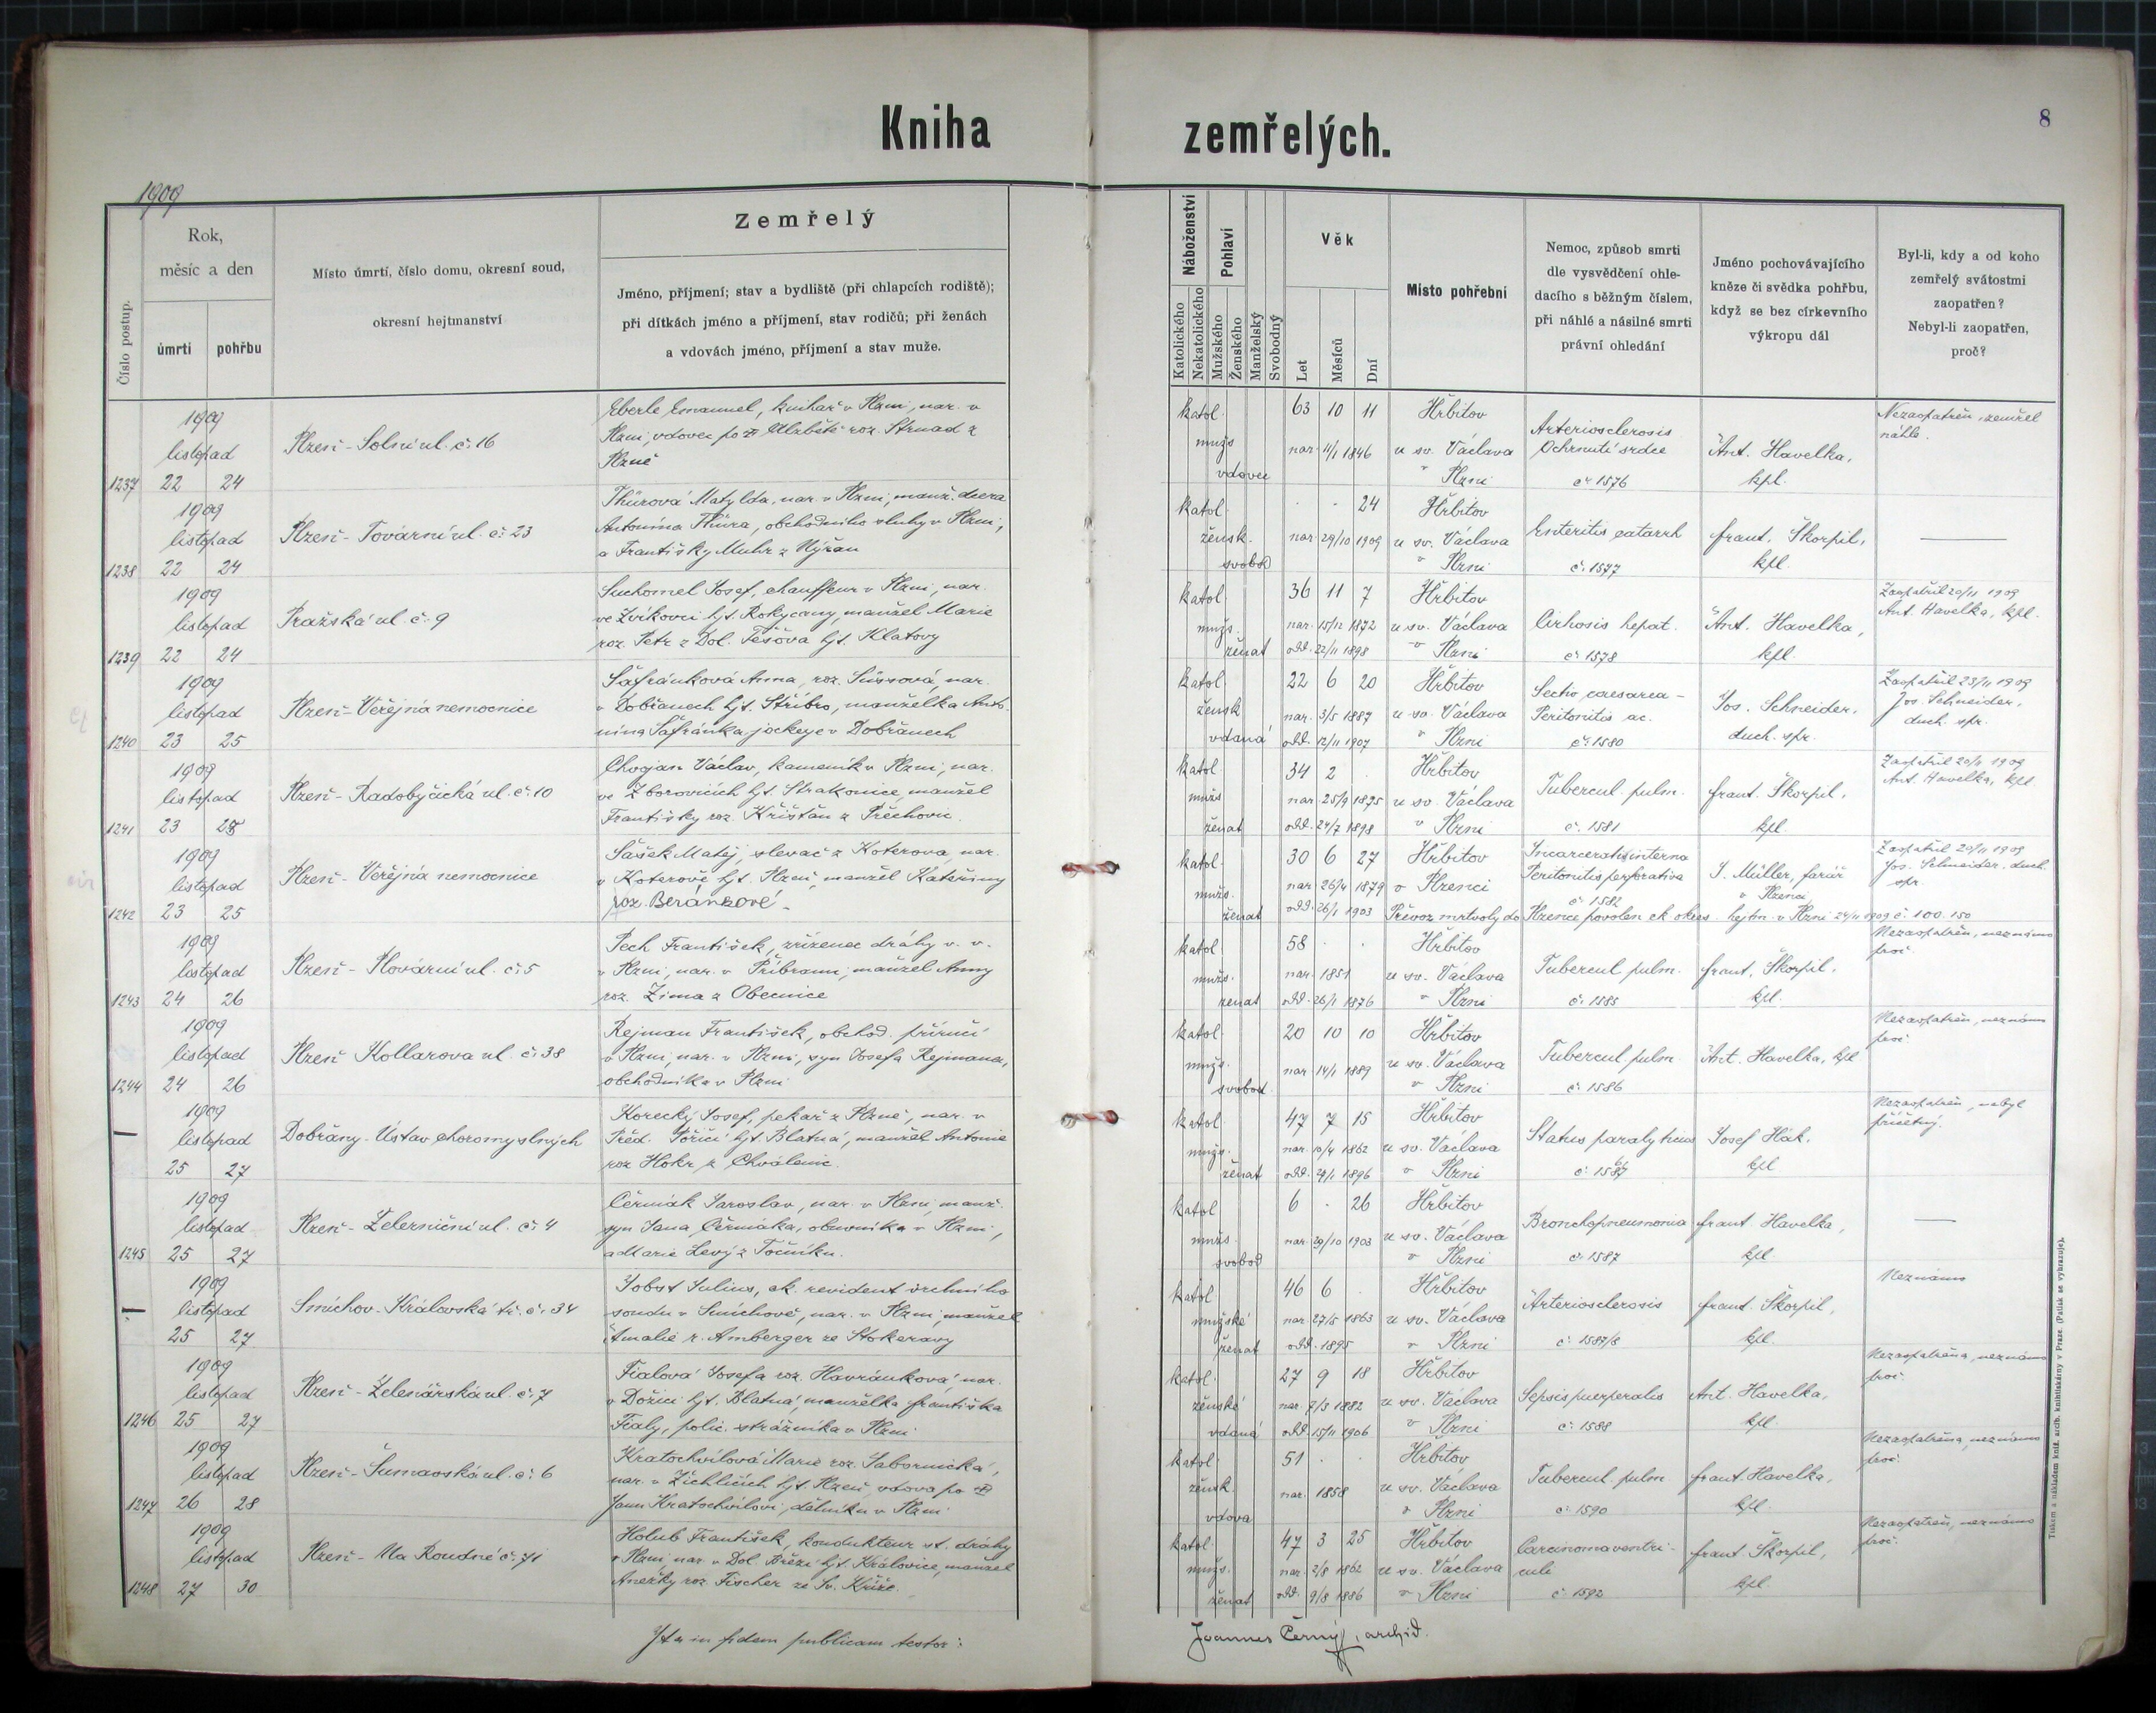 Kniha zemřelých.
8
1909
Číslo postup.
Rok,
měsíc a den
úmrtí
pohřbu
Místo úmrtí, číslo domu, okresní soud,
okresní hejtmanství
Zemřelý
Jméno, příjmení; stav a bydliště (při chlapcích rodiště);
při dítkách jméno a příjmení, stav rodičů; při ženách
a vdovách jméno, příjmení a stav muže.
Náboženství
Katolického
Nekatolického
Pohlaví
Mužského
Ženského
Manželský
Svobodný
Věk
Let
Měsíců
Dní
Místo pohřební
Nemoc, způsob smrti
dle vysvědčení ohle-
dacího s běžným číslem,
při náhlé a násilné smrti
právní ohledání
Jméno pochovávajícího
kněze či svědka pohřbu,
když se bez církevního
výkropu dál
Byl-li, kdy a od koho
zemřelý svátostmi
zaopatřen?
Nebyl-li zaopatřen,
proč?
1237
1909
listopad
22 24
Plzeň - Solní ul. č. 16
Eberle Emanuel, knihař v Plzni, nar. v
Plzni, vdovec po Alžbětě roz. Strnad z
Plzně
katol.
mužs
vdovec
63 10 11
nar. 11/1 1846
Hřbitov
u sv. Václava
v Plzni
Arteriosclerosis
Ochrnutí srdce
č. 1576
Ant. Havelka,
kpl.
Nezaopatřen, zemřel
náhle.
1238
1909
listopad
22 24
Plzeň - Tovární ul. č. 23
Thürová Matylda, nar. v Plzni, manž. dcera
Antonína Thüra, obchodního sluhy v Plzni,
a Františky Muhr z Nýřan
katol.
žensk.
svobod
24
nar. 29/10 1909
Hřbitov
u sv. Václava
v Plzni
Enteritis catarrh
č. 1577
Frant. Škorpil,
kpl.
1239
1909
listopad
22 24
Pražská ul. č. 9
Suchomel Josef, chauffeur v Plzni, nar.
ve Zvíkovci hjt. Rokycany, manžel Marie
roz. Petr z Dol. Těšova hjt. Klatovy
katol
mužs.
ženat
36 11 7
nar. 15/12 1872
odd. 22/11 1898
Hřbitov
u sv. Václava
v Plzni
Cirhosis hepat.
č. 1578
Ant. Havelka,
kpl.
Zaopatřil 20/11 1909
Ant. Havelka, kpl.
1240
1909
listopad
23 25
Plzeň - Veřejná nemocnice
Šafránková Anna, roz. Süssová, nar.
v Dobřanech hjt. Stříbro, manželka Anto-
nína Šafránka jockeye v Dobřanech
katol
žensk
vdaná
22 6 20
nar. 3/5 1887
odd. 12/11 1907
Hřbitov
u sv. Václava
v Plzni
Sectio caesarea -
Peritonitis ac.
č. 1580
Jos. Schneider,
duch. spr.
Zaopatřil 23/11 1909
Jos. Schneider,
duch. spr.
1241
1909
listopad
23 25
Plzeň - Radobyčická ul. č. 10
Chvojan Václav, kameník v Plzni, nar.
ve Zborovicích hjt. Strakonice, manžel
Františky roz. Křišťan z Přechovic.
katol
mužs
ženat
34 2
nar. 25/9 1875
odd. 24/7 1898
Hřbitov
u sv. Václava
v Plzni
Tubercul. pulm.
č. 1581
Frant. Škorpil,
kpl.
Zaopatřil 20/11 1909
Ant. Havelka, kpl.
1242
1909
listopad
23 25
Plzeň - Veřejná nemocnice
Šašek Matěj, slevač z Koterova, nar.
v Koterově hjt. Plzeň, manžel Kateřiny
roz. Beránkové
katol.
mužs.
ženat
30 6 27
nar. 26/4 1879
odd. 26/1 1903
Hřbitov
v Plzenci
Incarceratio interna
Peritonitis perforativa
č. 1582
J. Müller, farář
v Plzenci
Zaopatřil 20/11 1909
Jos. Schneider, duch.
spr.
Převoz mrtvoly do Plzence povolen ck okres. hejtm. v Plzni 24/11 1909 č. 100.150
1243
1909
listopad
24 26
Plzeň - Plovární ul. č. 5
Pech František, zřízenec dráhy v. v.
v Plzni, nar. v Příbrami, manžel Anny
roz. Zima z Obecnice
katol
mužs.
ženat
58
nar. 1851
odd. 26/1 1876
Hřbitov
u sv. Václava
v Plzni
Tubercul pulm.
č. 1585
Frant. Škorpil,
kpl.
Nezaopatřen, neznámo
proč.
1244
1909
listopad
24 26
Plzeň Kollarova ul. č. 38
Rejman František, obchod. příručí
v Plzni, nar. v Plzni, syn Josefa Rejmana,
obchodníka v Plzni
katol
mužs.
svobod.
20 10 10
nar. 14/1 1889
Hřbitov
u sv. Václava
v Plzni
Tubercul. pulm.
č. 1586
Ant. Havelka, kpl
Nezaopatřen, neznámo
proč.
1909
listopad
25 27
Dobřany - Ústav choromyslných
Korecký Josef, pekař z Plzně, nar. v
Před. Poříčí hjt. Blatná, manžel Antonie
roz Hokr z Chválenic.
katol.
mužs.
ženat
47 7 15
nar. 10/4 1862
odd. 29/1 1896
Hřbitov
u sv. Václava
v Plzni
Status paralyticus
Josef Hák.
kpl
Nezaopatřen, nebyl
příčetný.
1245
1909
listopad
25 27
Plzeň - Železniční ul. č. 4
Čermák Jaroslav, nar. v Plzni, manž.
syn Jana Čermáka, obuvníka v Plzni,
a Marie Levý z Točníku.
katol
mužs.
svobod
6 - 26
nar. 29/10 1903
Hřbitov
u sv. Václava
v Plzni
Bronchopneumonia
č. 1587
Frant. Havelka,
kpl.
1909
listopad
25 27
Smíchov - Královská tř. č. 34
Jobst Julius, ck. revident vrchního
soudu v Smíchově, nar. v Plzni, manžel
Amalie r. Amberger ze Stokeravy
katol
mužské
ženat
46 6
nar. 27/5 1863
odd. 1895
Hřbitov
u sv. Václava
v Plzni
Arteriosclerosis
č. 1587/8
Frant. Škorpil,
kpl.
Neznámo
1246
1909
listopad
25 27
Plzeň - Zelenářská ul. č. 7
Fialová Josefa roz. Havránková, nar.
v Dožici hjt. Blatná, manželka Františka
Fialy, polic. strážníka v Plzni
katol.
ženské
vdaná
27 9 18
nar. 7/3 1882
odd. 15/11 1906
Hřbitov
u sv. Václava
v Plzni
Sepsis puerperalis
č. 1588
Ant. Havelka,
kpl.
Nezaopatřena, neznámo
proč.
1247
1909
listopad
26 28
Plzeň - Šumavská ul. č. 6
Kratochvílová Marie roz. Tabornická,
nar. v Žichlicích hjt. Plzeň, vdova po
Janu Kratochvílovi, dělníku v Plzni
katol
žensk.
vdova
51
nar. 1858
Hřbitov
u sv. Václava
v Plzni
Tubercul. pulm
č. 1590
Frant. Havelka,
kpl.
Nezaopatřena, neznámo
proč.
1248
1909
listopad
27 30
Plzeň - Na Roudné č. 71
Holub František, kondukteur st. dráhy
v Plzni, nar. v Dol. Březí hjt. Kralovice, manžel
Anežky roz. Fischer ze Sv. Kříže.
katol.
mužs.
ženat
47 3 25
nar. 2/8 1862
odd. 9/8 1886
Hřbitov
u sv. Václava
v Plzni
Carcinoma ventri-
culi
č. 1592
Frant. Škorpil,
kpl.
Nezaopatřen, neznámo
proč.
Ita in fidem publicam testor:
Joannes Černý, archid.
Tiskem a nákladem kníž. arcib. knihtiskárny v Praze. (Patisk se vyhrazuje).